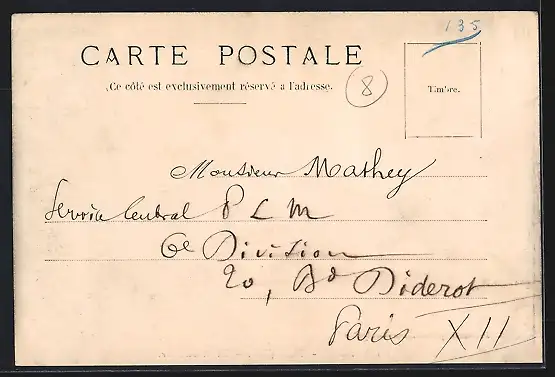 135
CARTE POSTALE
Ce côté est exclusivement réservé a l'adresse.
8
Timbre.
Monsieur Mathey
Service Central P L M
6e Division
20, Bd Diderot
Paris XII